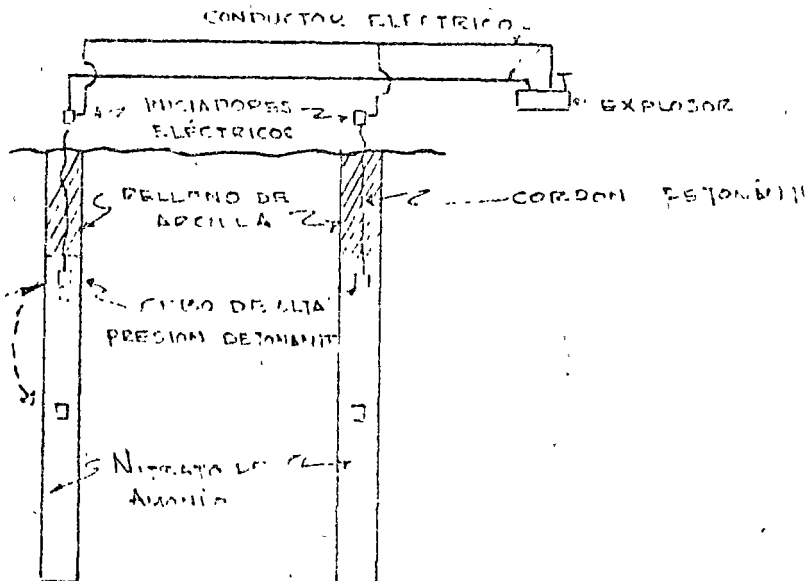 CONDUCTOR ELÉCTRICO
INICIADORES
ELÉCTRICOS
EXPLOSOR
RELLENO DE
ARCILLA
CORDON
DE ALTA
PRESION DETONANTE
NITRATO DE
AMONIO